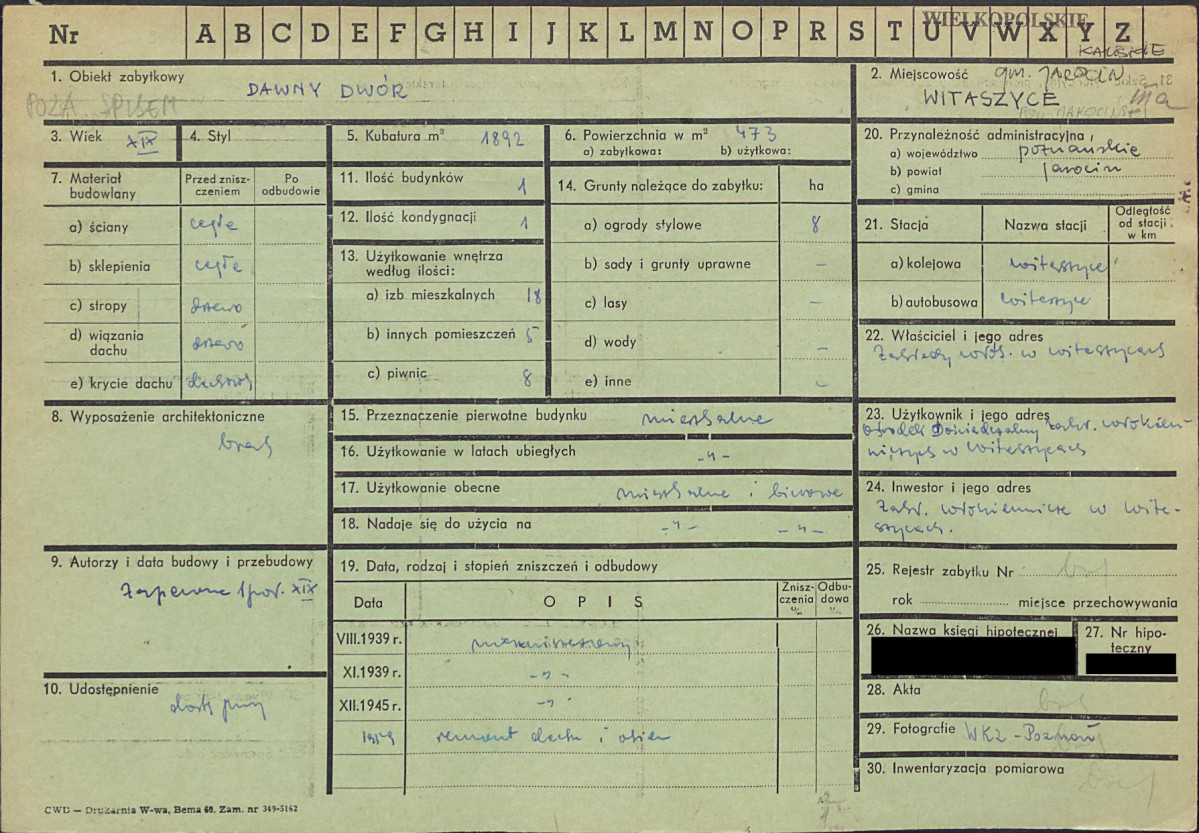 Nr A B C D E F G H I J K L M N O P R S T U V W X Y Z
WIELKOPOLSKIE
KALISKIE
1. Obiekt zabytkowy
DAWNY DWÓR
POZA SPISEM
2. Miejscowość gm. JAROCIN
WITASZYCE
3. Wiek XIX
4. Styl
5. Kubatura m³ 1892
6. Powierzchnia w m² 473
a) zabytkowa: b) użytkowa:
20. Przynależność administracyjna
a) województwo poznańskie
b) powiat Jarocin
c) gmina
7. Materiał budowlany
Przed zniszczeniem
Po odbudowie
a) ściany cegła
b) sklepienia cegła
c) stropy drewo
d) wiązania dachu drewo
e) krycie dachu
11. Ilość budynków 1
12. Ilość kondygnacji 1
13. Użytkowanie wnętrza
według ilości:
a) izb mieszkalnych 18
b) innych pomieszczeń 5
c) piwnic 8
14. Grunty należące do zabytku: ha
a) ogrody stylowe 8
b) sady i grunty uprawne –
c) lasy –
d) wody –
e) inne –
21. Stacja
Nazwa stacji
Odległość
od stacji
w km
a) kolejowa Witaszyce
b) autobusowa Witaszyce
22. Właściciel i jego adres
Zakłady włók. w Witaszycach
8. Wyposażenie architektoniczne
brak
15. Przeznaczenie pierwotne budynku mieszkalne
16. Użytkowanie w latach ubiegłych -"-
17. Użytkowanie obecne mieszkalne i biurowe
18. Nadaje się do użycia na -"- -"-
23. Użytkownik i jego adres
Ośrodek Doświadczalny Zakł. Włókien-
niczych w Witaszycach
24. Inwestor i jego adres
Zakł. włókiennicze w Wita-
szycach.
9. Autorzy i data budowy i przebudowy
Zapewne 1 poł. XIX
19. Data, rodzaj i stopień zniszczeń i odbudowy
Data
O P I S
Zniszczenia %
Odbudowa %
VIII.1939 r. niezniszczony
XI.1939 r. -"-
XII.1945 r. -"-
1959 remont dachu i okien
25. Rejestr zabytku Nr brak
rok miejsce przechowywania
26. Nazwa księgi hipotecznej
27. Nr hipo-
teczny
10. Udostępnienie
28. Akta brak
29. Fotografie WKZ - Poznań
30. Inwentaryzacja pomiarowa brak
CWD — Drukarnia W-wa, Bema 60. Zam. nr 349-5162